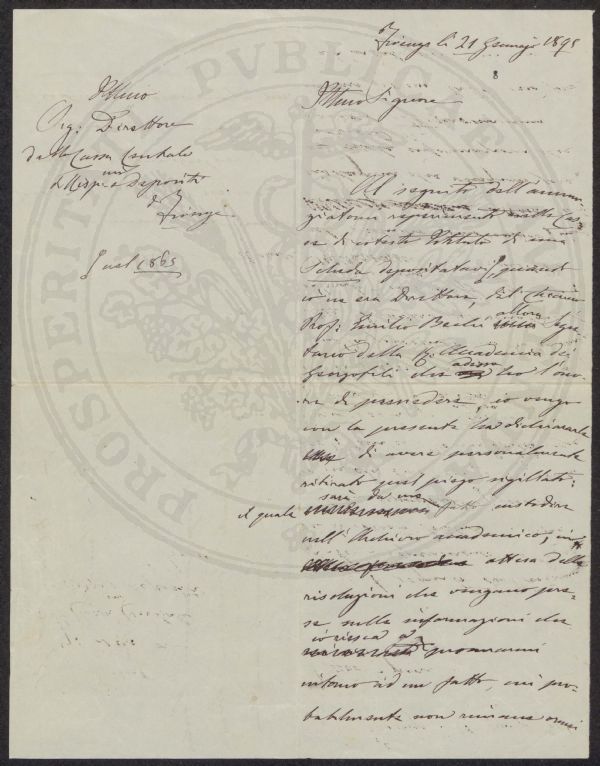 Firenze li 21 Gennajo 1895
8
Illmo
Sig: Direttore
della Cassa Centrale
di Risp: e Depositi
di Firenze
1865
Illmo Signore
A seguito dell'
rinvenimento nella Cas-
sa di cotesto Istituto di una
Scheda depositatavi, quand'
io ne era Direttore, dal
Prof: Emilio Bechi allora Segre
tario della R. Accademia dei
Georgofili che adesso ho l'ono-
re di presiedere, io vengo
con la presente ha dichiararle
di avere personalmente
ritirato quel piego sigillato;
il quale sarà da me fatto custodire
nell'Archivio accademico, in
attesa delle
risoluzioni che vengano pre-
se sulle informazioni che
io riesca a procurarmi
intorno ad un fatto, cui pro-
babilmente non rimane ormai
PROSPERITATI PUBLICAE